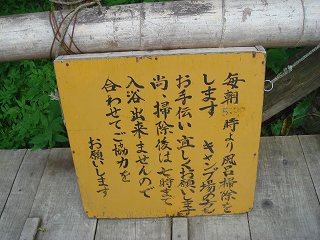 毎朝5時より風呂掃除を
します キャンプ場の方も
お手伝い宜しくお願いします
尚、掃除後は七時まで
入浴出来ませんので
合わせてご協力を
お願いします